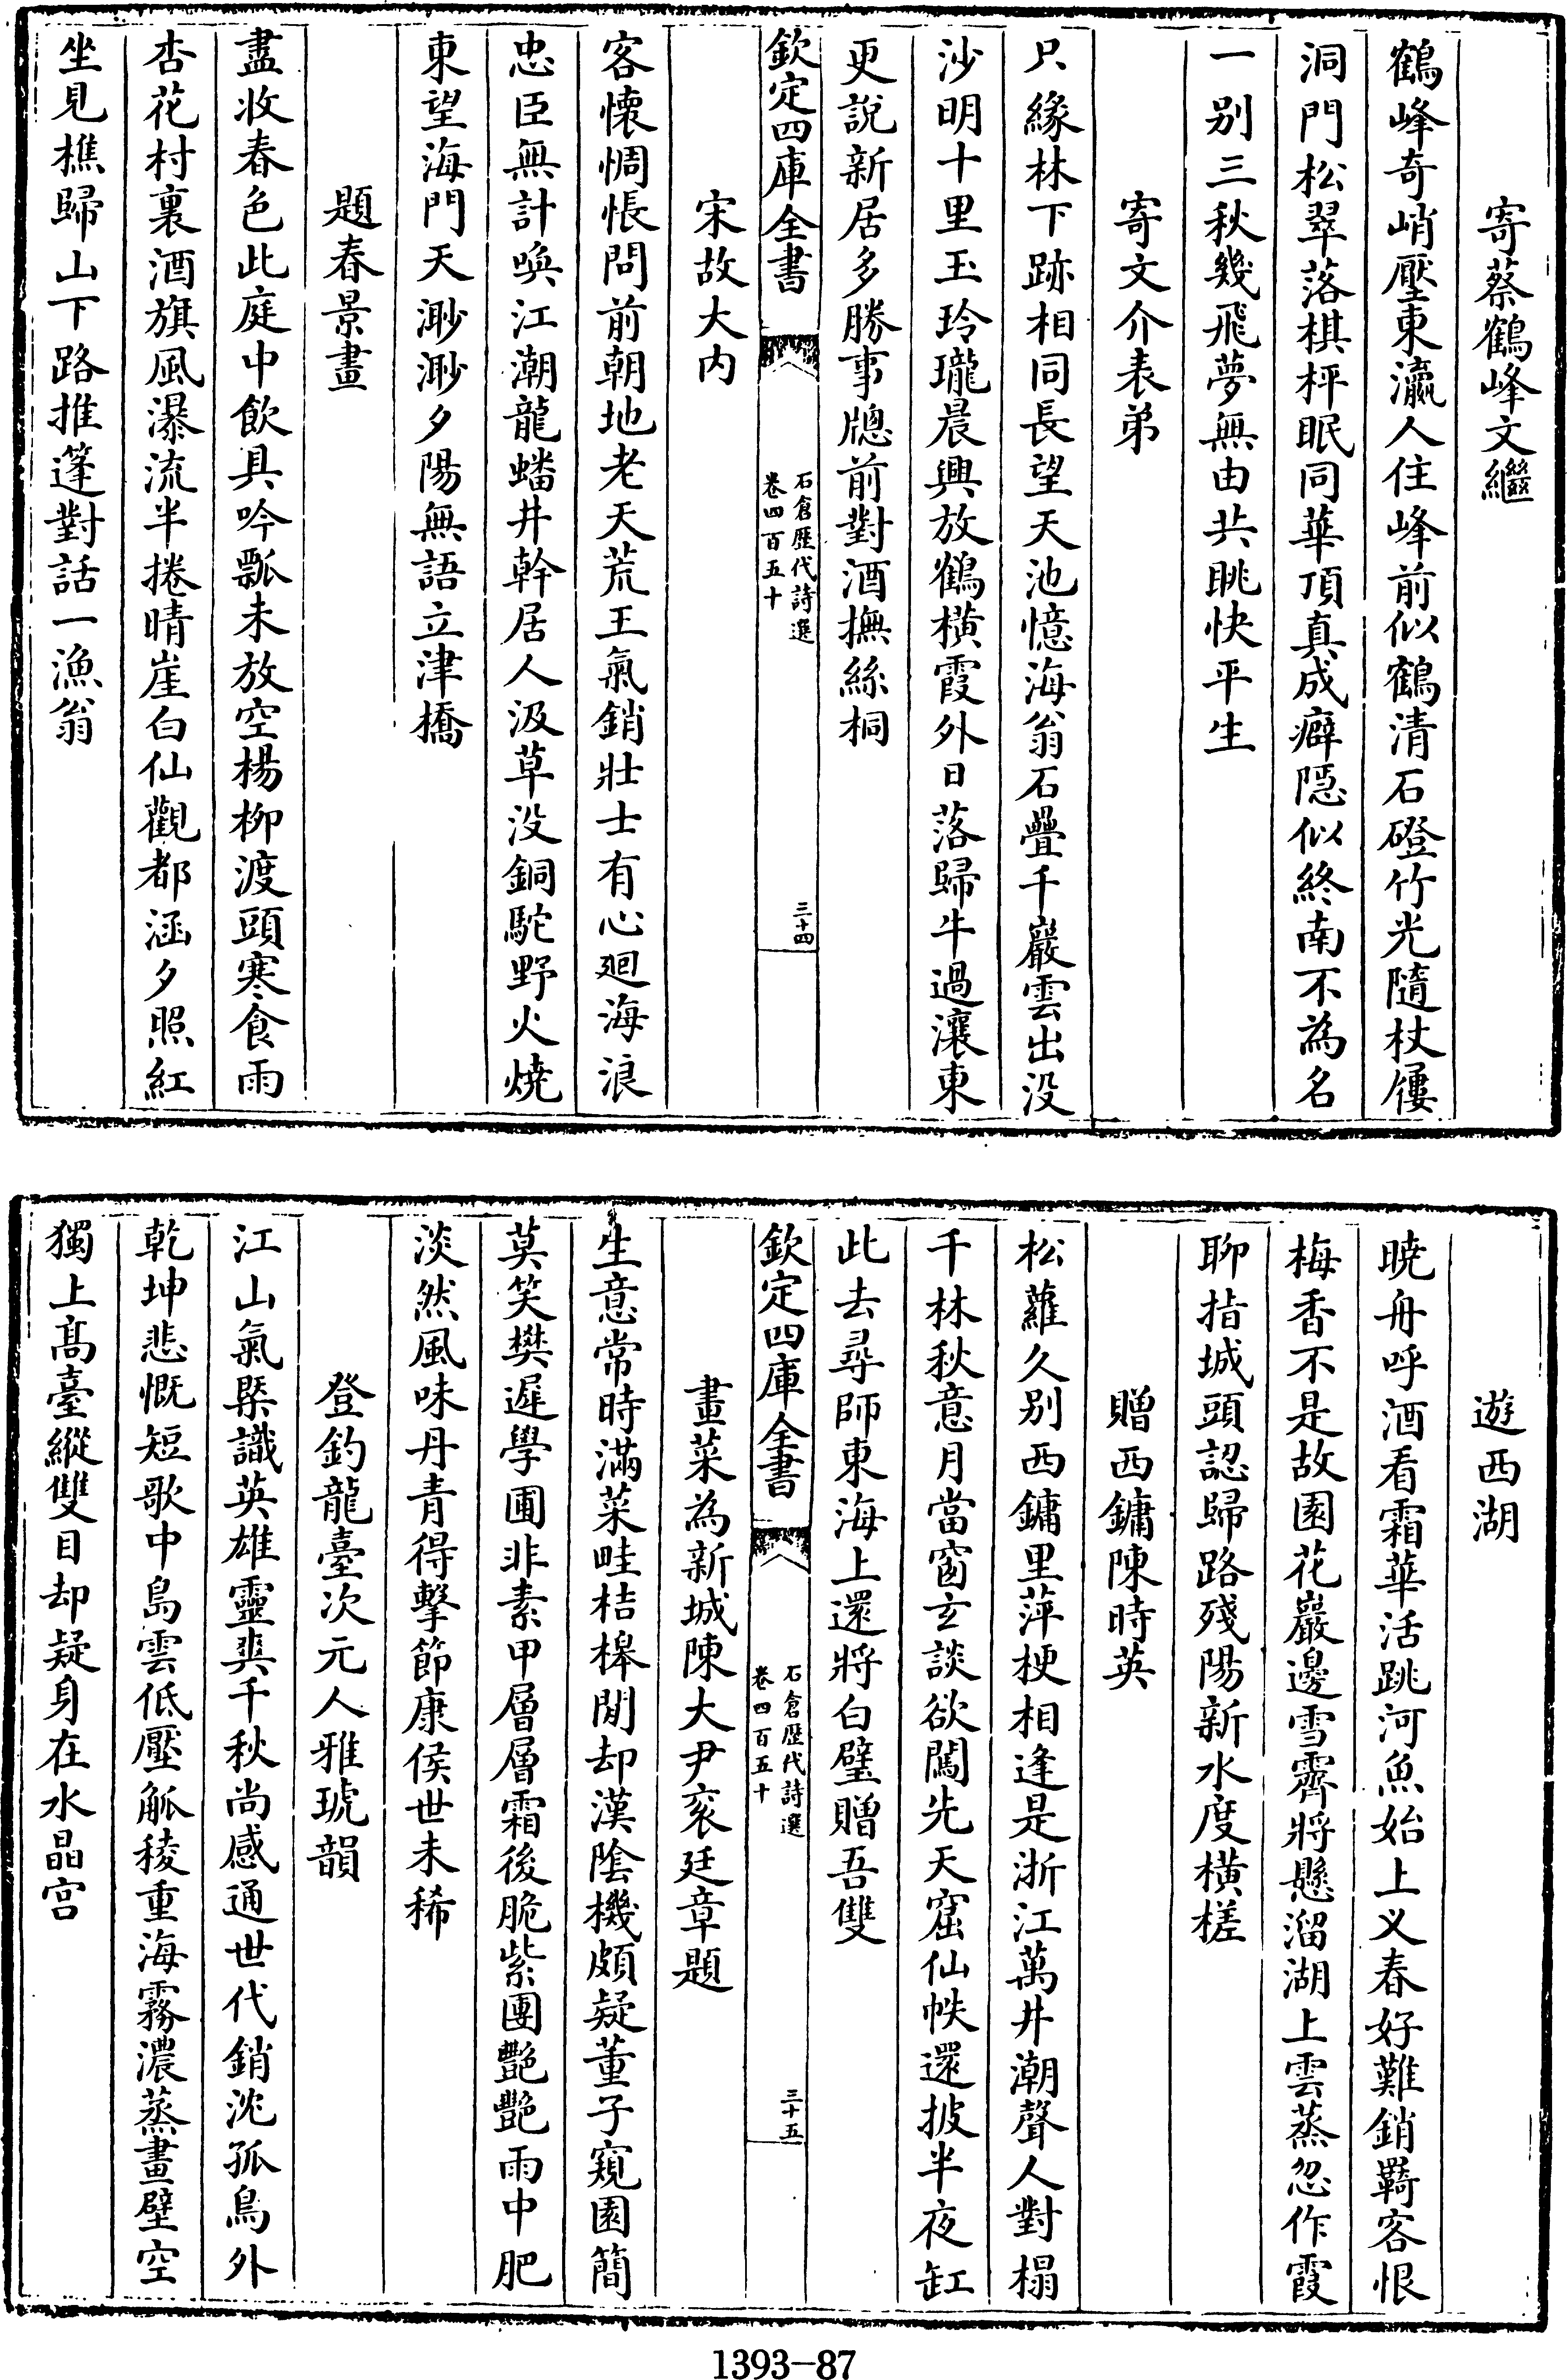 寄蔡鶴峰文繼
鶴峰奇峭壓東瀛人住峰前似鶴清石磴竹光隨杖屨
洞門松翠落棋枰眠同華頂真成癖隱似終南不為名
一别三秋幾飛夢無由共眺快平生
寄文介表弟
只緣林下跡相同長望天池憶海翁石疊千巖雲出没
沙明十里玉玲瓏晨興放鶴橫霞外日落歸牛過瀼東
更說新居多勝事牕前對酒撫絲桐
欽定四庫全書
石倉歷代詩選
卷四百五十
三十四
宋故大内
客懷惆悵問前朝地老天荒王氣銷壯士有心廻海浪
忠臣無計喚江潮龍蟠井幹居人汲草没銅駝野火燒
東望海門天渺渺夕陽無語立津橋
題春景畫
盡收春色此庭中飲具吟瓢未放空楊柳渡頭寒食雨
杏花村裏酒旗風瀑流半捲晴崖白仙觀都涵夕照紅
坐見樵歸山下路推篷對話一漁翁
遊西湖
曉舟呼酒看霜華活跳河魚始上义春好難銷羇客恨
梅香不是故園花巖邊雪霽將懸溜湖上雲蒸忽作霞
聊指城頭認歸路殘陽新水度橫槎
贈西鏞陳時英
松蘿久别西鏞里萍梗相逢是浙江萬井潮聲人對榻
千林秋意月當窗玄談欲闖先天窟仙帙還披半夜缸
此去尋師東海上還將白璧贈吾雙
欽定四庫全書
石倉歷代詩選
卷四百五十
三十五
畫菜為新城陳大尹衮廷章題
生意常時滿菜畦桔槹閒却漢陰機頗疑董子窺園簡
莫笑樊遲學圃非素甲層層霜後脆紫團艷艷雨中肥
淡然風味丹青得擊節康侯世未稀
登釣龍臺次元人雅琥韻
江山氣槩識英雄靈爽千秋尚感通世代銷沈孤鳥外
乾坤悲慨短歌中島雲低壓觚稜重海霧濃蒸畫壁空
獨上髙臺縱雙目却疑身在水晶宫
1393-87